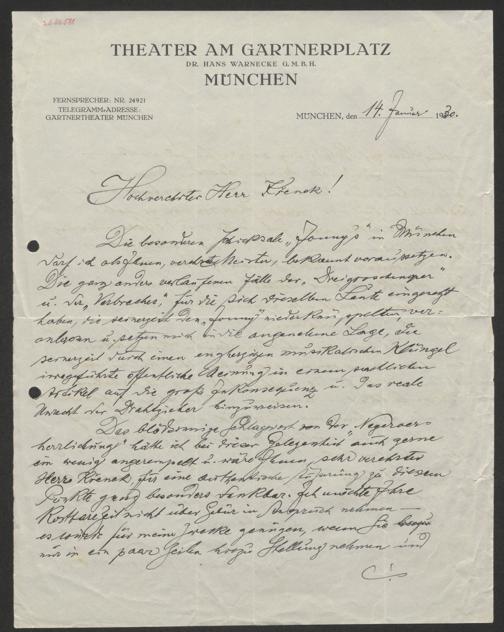 THEATER AM GÄRTNERPLATZ
DR. HANS WARNECKE G.M.B.H.
MÜNCHEN
FERNSPRECHER: NR. 24921
TELEGRAMM-ADRESSE:
GÄRTNERTHEATER MÜNCHEN
MÜNCHEN, den 14. Januar 1930.
Hochverehrter Herr Křenek!
Die besonderen Schicksale „Jonny's" in München
darf ich als Ihnen, verehrter Meister, bekannt voraussetzen.
Die ganz anders verlaufenen Fälle der „Dreigroschenoper"
u. der „Verbrecher", für die sich dieselben Leute eingesetzt
haben, die seinerzeit den „Jonny" niederkanüppelten, ver-
anlassen u. setzen mich in die angenehme Lage, die
seinerzeit durch einen engherzigen musikalischen Klüngel
irregeführte öffentliche Meinung in einem sachlichen
Artikel auf die große Inkonsequenz u. das reale
Unrecht der Drahtzieher hinzuweisen.
Das blödsinnige Schlagwort von der „Negerver-
herrlichung" hätte ich bei dieser Gelegenheit auch gerne
ein wenig angerempelt u. wäre Ihnen, sehr verehrter
Herr Křenek, für eine authentische Äußerung zu diesem
Punkte ganz besonders dankbar. Ich möchte Ihre
kostbare Zeit nicht über Gebür in Anspruch nehmen —
es würde für meine Zwecke genügen, wenn Sie
nur in ein paar Zeilen hiezu Stellung nehmen und